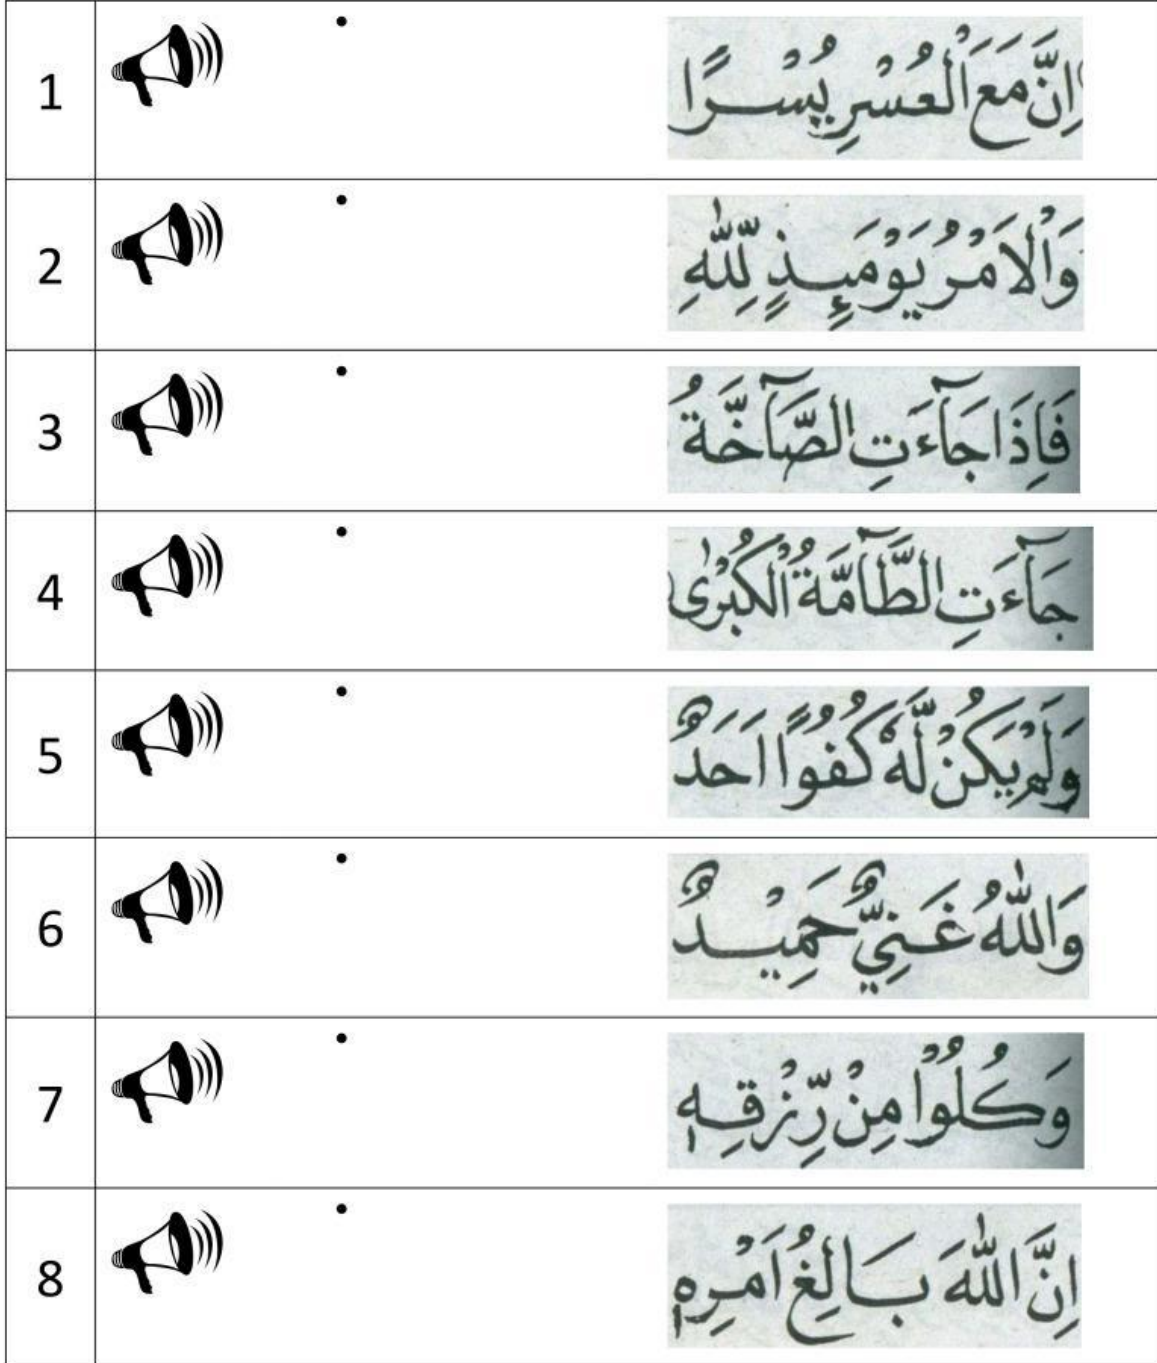 1 اِنَّ مَعَ الْعُسْرِ يُسْرًا
2 وَالْاَمْرُ يَوْمَىِٕذٍ لِّلّٰهِ
3 فَاِذَا جَآءَتِ الصَّآخَّةُ
4 جَآءَتِ الطَّآمَّةُ الْكُبْرٰى
5 وَلَمْ يَكُنْ لَّهٗ كُفُوًا اَحَدٌ
6 وَاللّٰهُ غَنِيٌّ حَمِيْدٌ
7 وَكُلُوْا مِنْ رِّزْقِهٖ
8 اِنَّ اللّٰهَ بَالِغُ اَمْرِهٖ